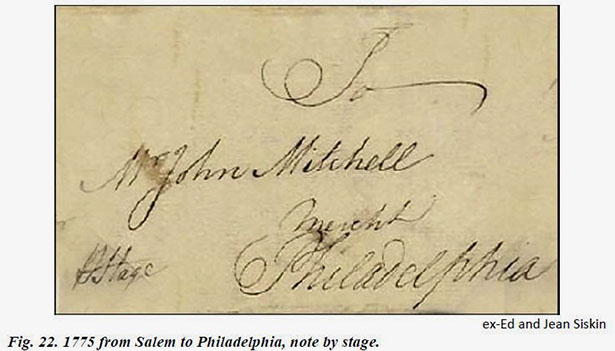 To
Mr John Mitchell
Mercht
Philadelphia
⅌ Stage
ex-Ed and Jean Siskin
Fig. 22. 1775 from Salem to Philadelphia, note by stage.